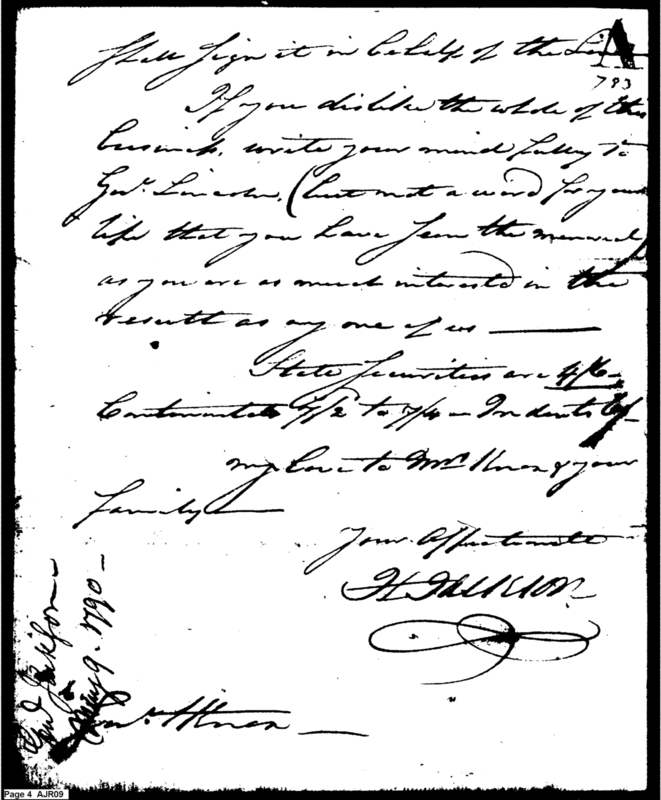 shall sign it in behalf of the
A
793
If you dislike the whole of this
business, write your mind fully to
Genl. Lincoln, (but not a word for your
life that you have seen the memorial
as you are as much interested in the
result as any one of us —
State Securities are 4/6 —
Continental 7/2 to 7/4 — Indents
my love to Mrs Knox & your
family —
Your Affectionate
H Jackson
Genl. Knox —
Genl Jackson —
May 9. 1790 —
Page 4 AJR09